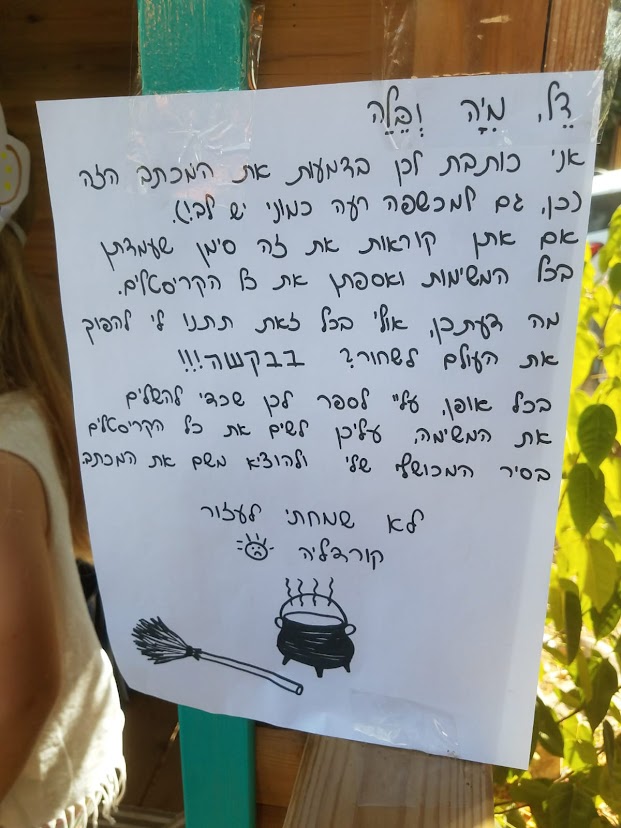 דֶל, מֵיָה וְפֵלֵה
אני כותבת לכן בדמעות את המכתב הזה
(כן, גם למכשפה רעה כמוני יש לב!).
אם אתן קוראות את זה סימן שעמדתן
בכל המשימות ואספתן את כל הקריסטלים.
מה דעתכן, אולי בכל זאת תתנו לי להפוך
את העולם לשחור? בבקשה!!!
בכל אופן, עליי לספר לכן שכדי להשלים
את המשימה, עליכן לשים את כל הקריסטלים
בסיר המכושף שלי ולהוציא משם את המכתב.
לא שמחתי לעזור
קורדליה